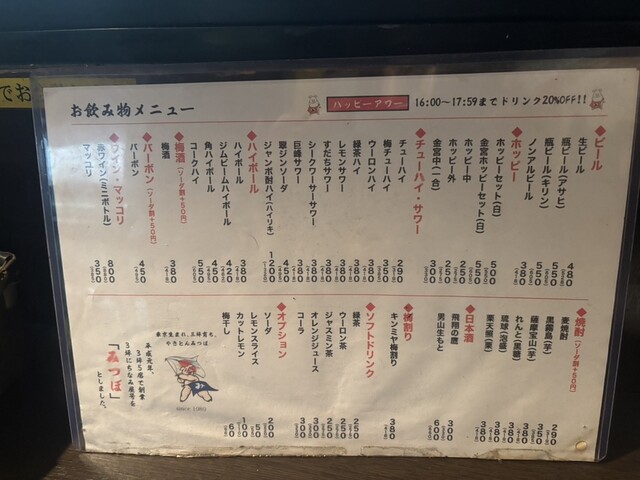 でお
お飲み物メニュー
ハッピーアワー 16:00〜17:59までドリンク20%OFF!!
◆ビール
生ビール 480
瓶ビール(アサヒ) 550
瓶ビール(キリン) 550
ノンアルビール 380
◆ホッピー
ホッピーセット(白) 500
金宮ホッピーセット(白) 550
ホッピー中 250
ホッピー外 250
金宮中(一合) 300
◆チューハイ・サワー
チューハイ 290
梅チューハイ 350
ウーロンハイ 380
緑茶ハイ 380
レモンサワー 380
すだちサワー 380
シークワーサーサワー 380
巨峰サワー 380
翠ジンソーダ 450
ジャンボ酎ハイ(ハイリキ) 1200
◆ハイボール
ハイボール 380
ジムビームハイボール 420
角ハイボール 450
コークハイ 550
◆梅酒(ソーダ割+50円)
梅酒 380
◆バーボン(ソーダ割+50円)
バーボン 450
◆ワイン・マッコリ
赤ワイン(ミニボトル) 800
マッコリ 350
◆焼酎(ソーダ割+50円)
麦焼酎 290
黒霧島(芋) 350
薩摩宝山(芋) 380
れんと(黒糖) 380
琉球(泡盛) 380
栗天照(栗) 380
◆日本酒
飛翔の鷹 300
男山生もと 600
◆樽割り
キンミヤ梅割り 380
◆ソフトドリンク
緑茶 250
ウーロン茶 250
ジャスミン茶 250
オレンジジュース 300
コーラ 300
◆オプション
ソーダ 200
レモンスライス 50
カットレモン 100
梅干し 60
平成元年、
3坪5席で創業
3坪にちなみ屋号を
「みつぼ」
としました。
since 1989